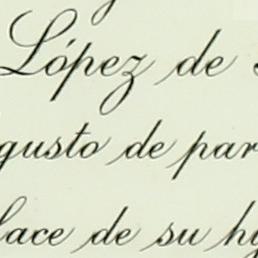 López de
gusto de par
lace de su hi